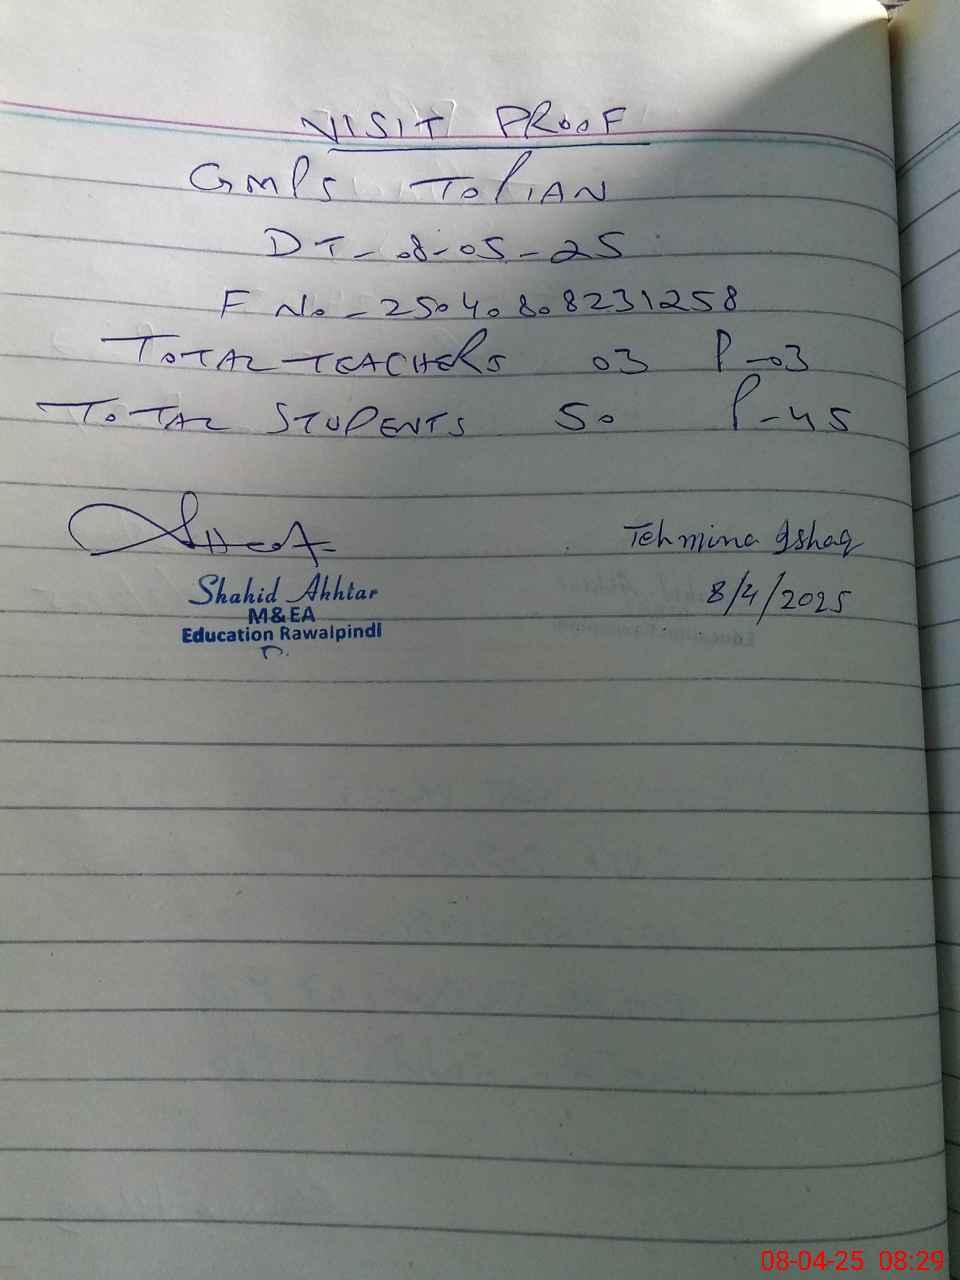 VISIT PROOF
GMPS TOPIAN
DT-08-05-25
F No - 25040808231258
TOTAL TEACHERS 03 P-03
TOTAL STUDENTS 50 P-45
Tehmina Ishaq
8/4/2025
Shahid Akhtar
M&EA
Education Rawalpindi
08-04-25 08:29